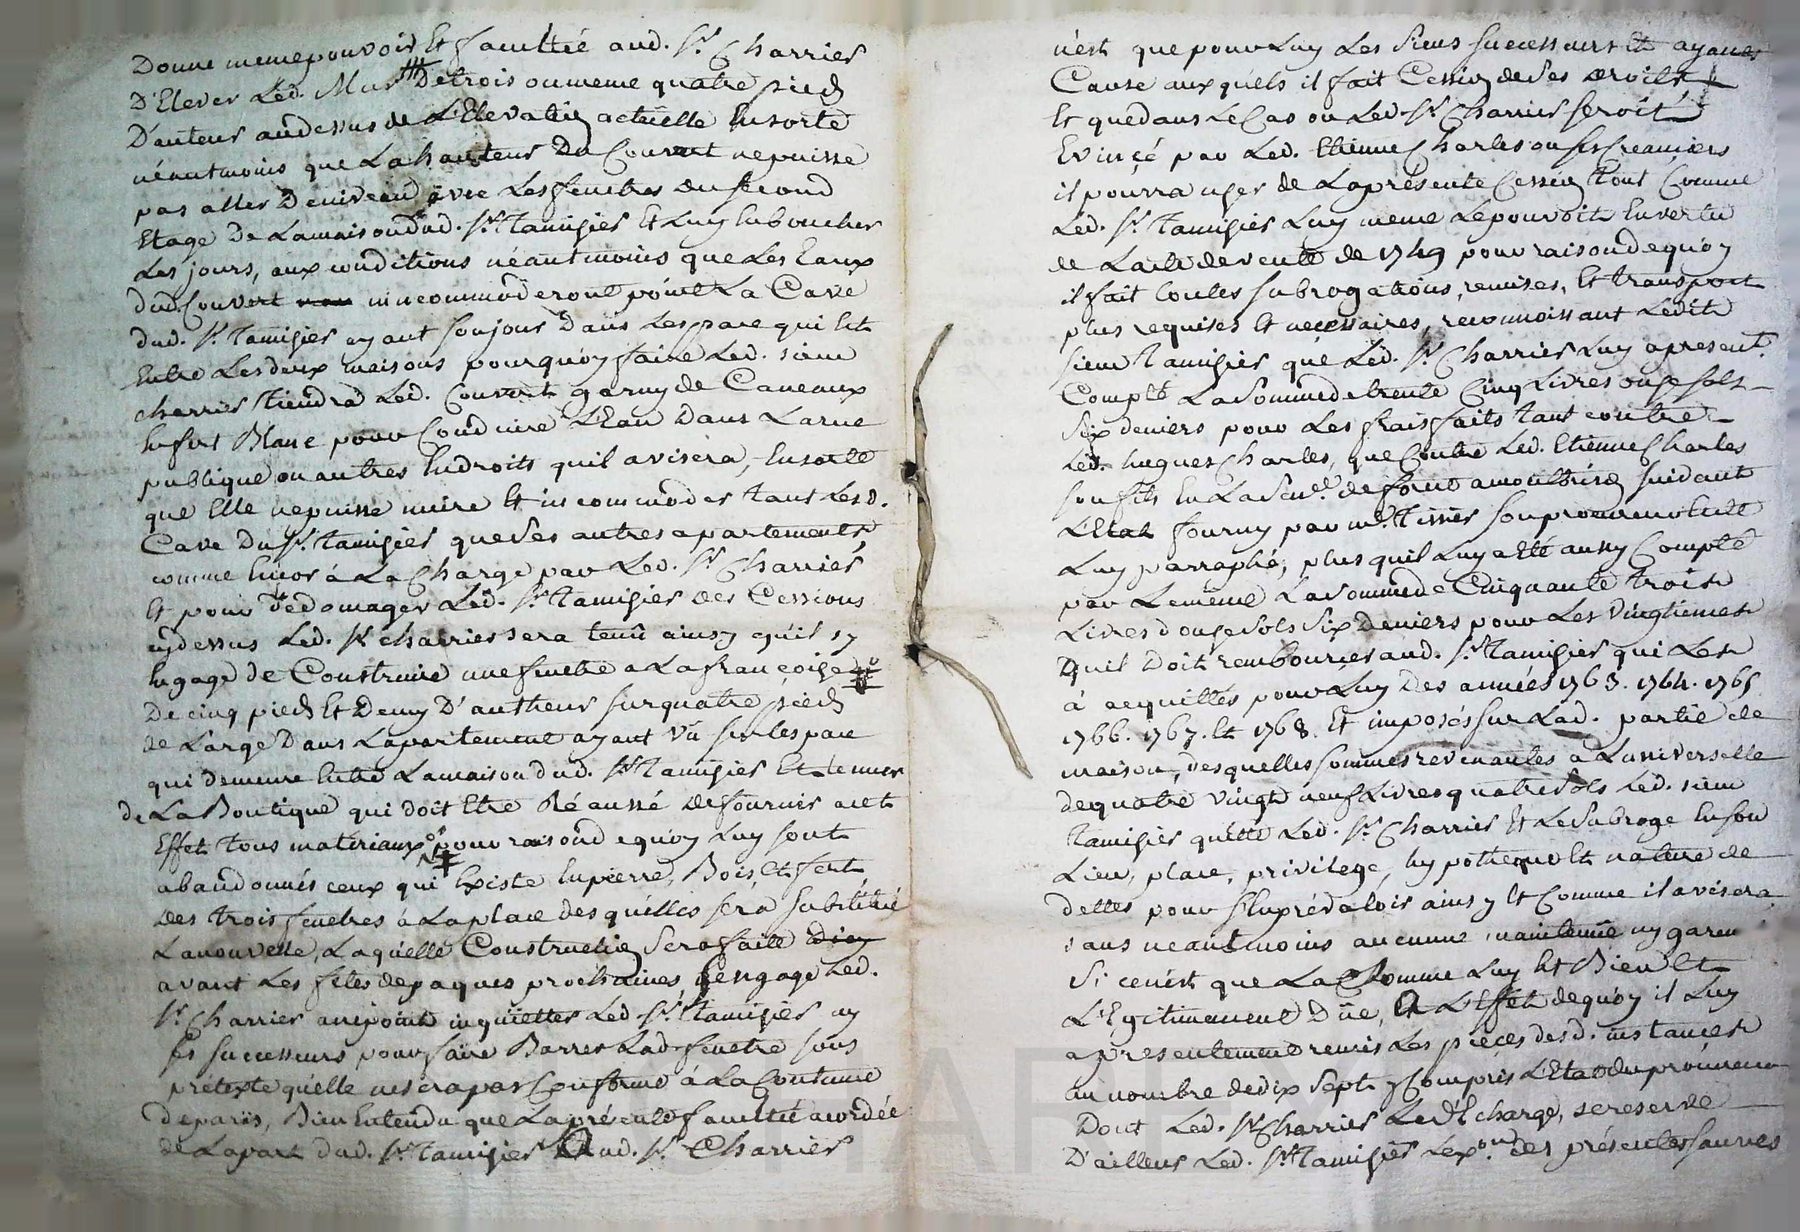 Donne meme pouvoir Et faculté aud. Sr. Charrier
D'Elever Led. Mur De trois ou meme quatre pieds
D'auteur audessus de L'Elevation actuelle Ensorte
néantmoins que La hauteur Du Couvert ne puisse
pas aller De niveau avec Les fenetres du second
Etage De La maison dud. Sr. Tamisier Et Luy En boucher
Les jours, aux conditions néantmoins que Les Eaux
dud. Couvert n'incommoderont point La Cave
dud. Sr. Tamisier ayant son jour Dans Lespace qui Est
Entre Les deux maisons pourquoy faire Led. sieur
charrier tiendra Led. Couvert garny de Caneaux
En fert Blanc pour Conduire L'Eau Dans La rue
publique ou autres Endroits quil avisera, Ensorte
que Elle ne puisse nuire Et incommoder tant Lesd.
Cave Du Sr. Tamisier que Ses autres apartements,
comme Encor à La Charge par Led. Sr. Charrier
Et pour dédomager Led. Sr. Tamisier des Cessions
cydessus Led. Sr. charrier sera tenu ainsy qu'il sy
Engage de Construire une fenetre a La françoise
De cinq pieds Et Demy D'autheur sur quatre pieds
de Large Dans Lapartement ayant Vû sur Lespace
qui demeure Entre La maison dud. Sr. Tamisier Et Le mur
de La Boutique qui doit Etre Réaussé de fournir a cet
Effet tous materiaux pour raison de quoy Luy sont
abandonnés ceux qui Existe En pierre, Bois, Et fert
Des trois fenetres à La place desquelles sera substitué
La nouvelle, Laquelle Construction Sera faite
avant Les fetes de paques prochaines, s'engage Led.
Sr. Charrier a ne point inquietter Led. Sr. Tamisier ny
ses successeurs pour faire Barrer Lad. fenetre sous
prétexte quelle ne sera pas Conforme à La Coutume
de paris, Bien Entendu que La présente faculté acordée
de La part dud. Sr. Tamisier aud. Sr. Charrier
n'est que pour Luy Les Siens successeurs Et ayants
Cause aux quels il fait Cession de Ses droits
Et que dans Le Cas ou Led. Sr. Charrier seroit
Evinçé par Led. Etienne Charles ou ses Creanciers
il pourra user de La présente Cession tout Comme
Led. Sr. Tamisier Luy meme Le pouvoit En vertu
de L'acte de vente de 1749 pour raison de quoy
il fait toutes subrogations, remises, Et transport
plus requises Et necessaires, reconnoissant Ledit
sieur Tamisier que Led. Sr. Charrier Luy a present.
Compté La Somme de trente Cinq Livres onze sols
Six deniers pour Les frais faits tant contre
Led. hugues Charles, que Contre Led. Etienne Charles
son fils En La Sen.
L'Etat fourny par me. Tissier son procureur
Luy parraphé, plus quil Luy a Eté aussy Compté
par Le même La somme de Cinquante trois
Livres douze Sols Six deniers pour Les Vingtiemes
Quil Doit rembourcer aud. Sr. Tamisier qui Les
à acquittés pour Luy Des années 1763. 1764. 1765
1766. 1767. Et 1768. Et imposés sur Lad. partie de
maison, desquelles sommes revenantes a L'universelle
de quatre vingt neuf Livres quatre Sols Led. sieur
Tamisier quitte Led. Sr. Charrier Et Le Subroge En son
Lieu, place, privilege, hypotheque Et nature de
dettes pour s'En prévaloir ainsy Et Comme il avisera
sans neantmoins aucunne maintenüe ny garen
Si ce n'est que La Somme Luy Est Bien Et
L'Egitimement Düe, A L'Effet de quoy il Luy
a présentement remis Les pièces desd. instances
au nombre de dix Sept y Compris L'Etat du procureur
Dont Led. Sr. Charrier Le décharge, se reserve
D'ailleur Led. Sr. Tamisier Lexon. des présentes sauves